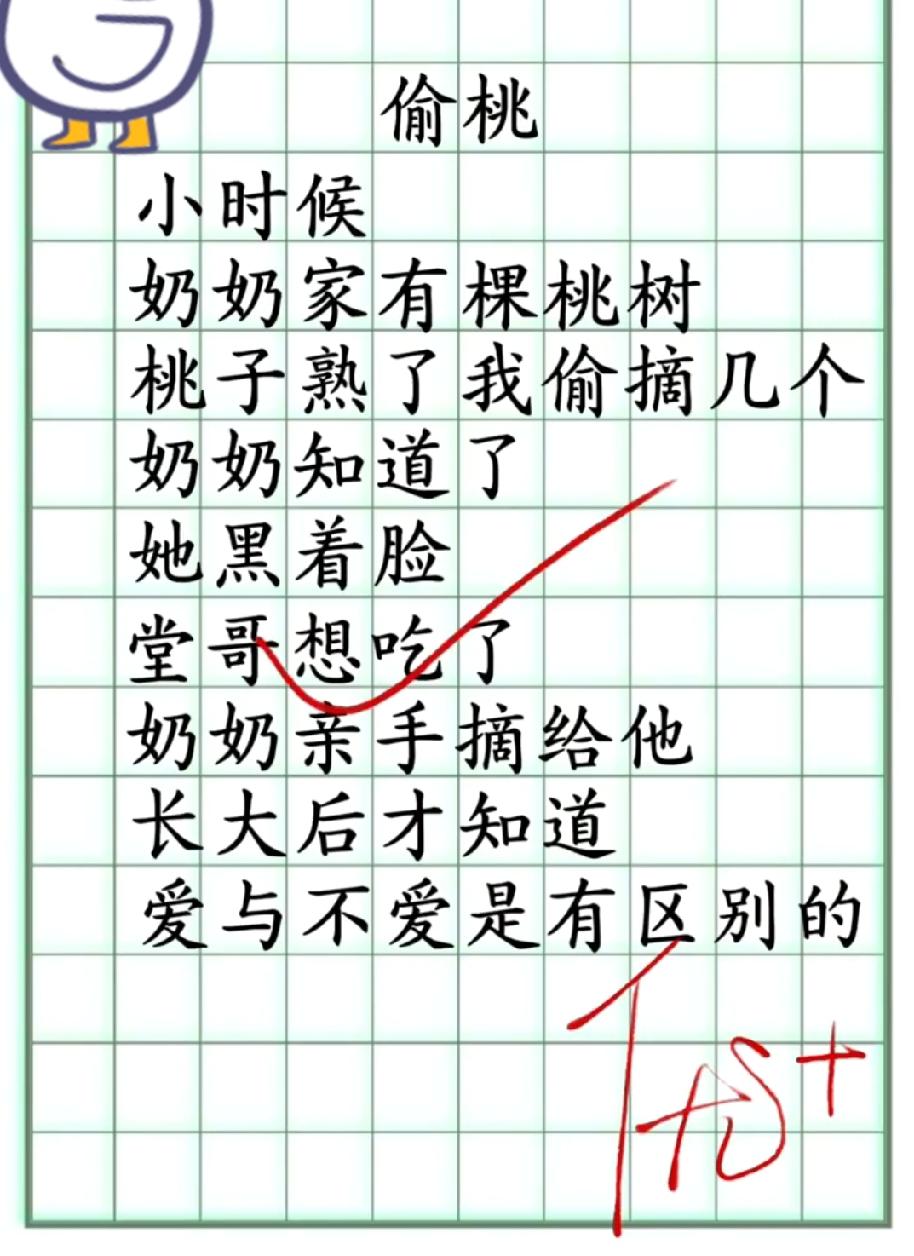 偷桃
小时候
奶奶家有棵桃树
桃子熟了我偷摘几个
奶奶知道了
她黑着脸
堂哥想吃了
奶奶亲手摘给他
长大后才知道
爱与不爱是有区别的